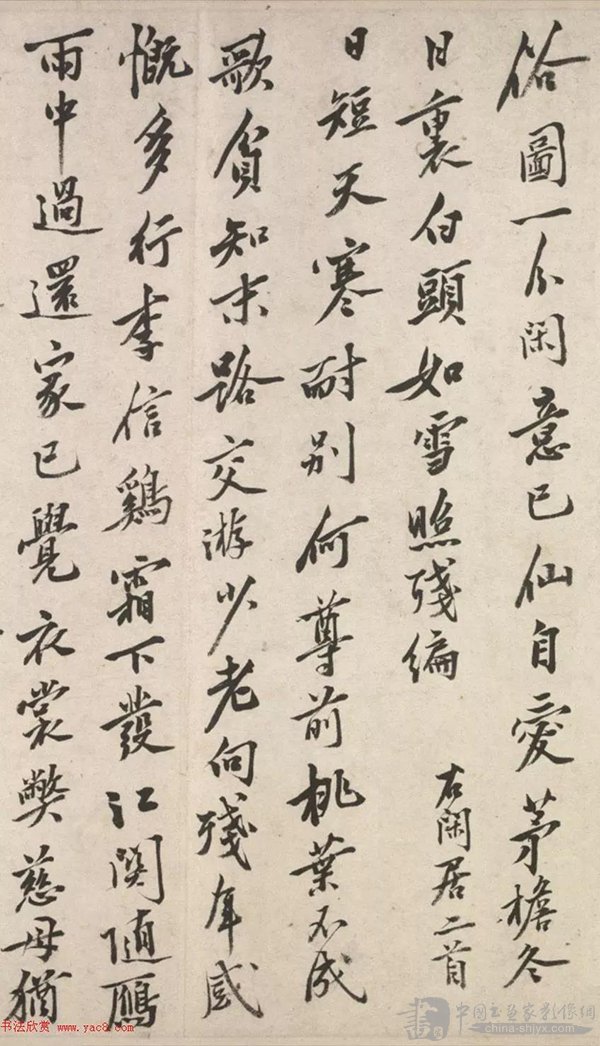 俗圖一分閑意已仙自愛茅檐冬
日裏白頭如雪照殘編
右閑居二首
日短天寒耐別何尊前桃葉不成
歌貧知末路交游少老向殘年感
慨多行李信鷄霜下發江関隨鴈
雨中過還家已覺衣裳弊慈母猶
书法欣赏 www.yac8.com
中国书画家影像網
china-shjyx.com